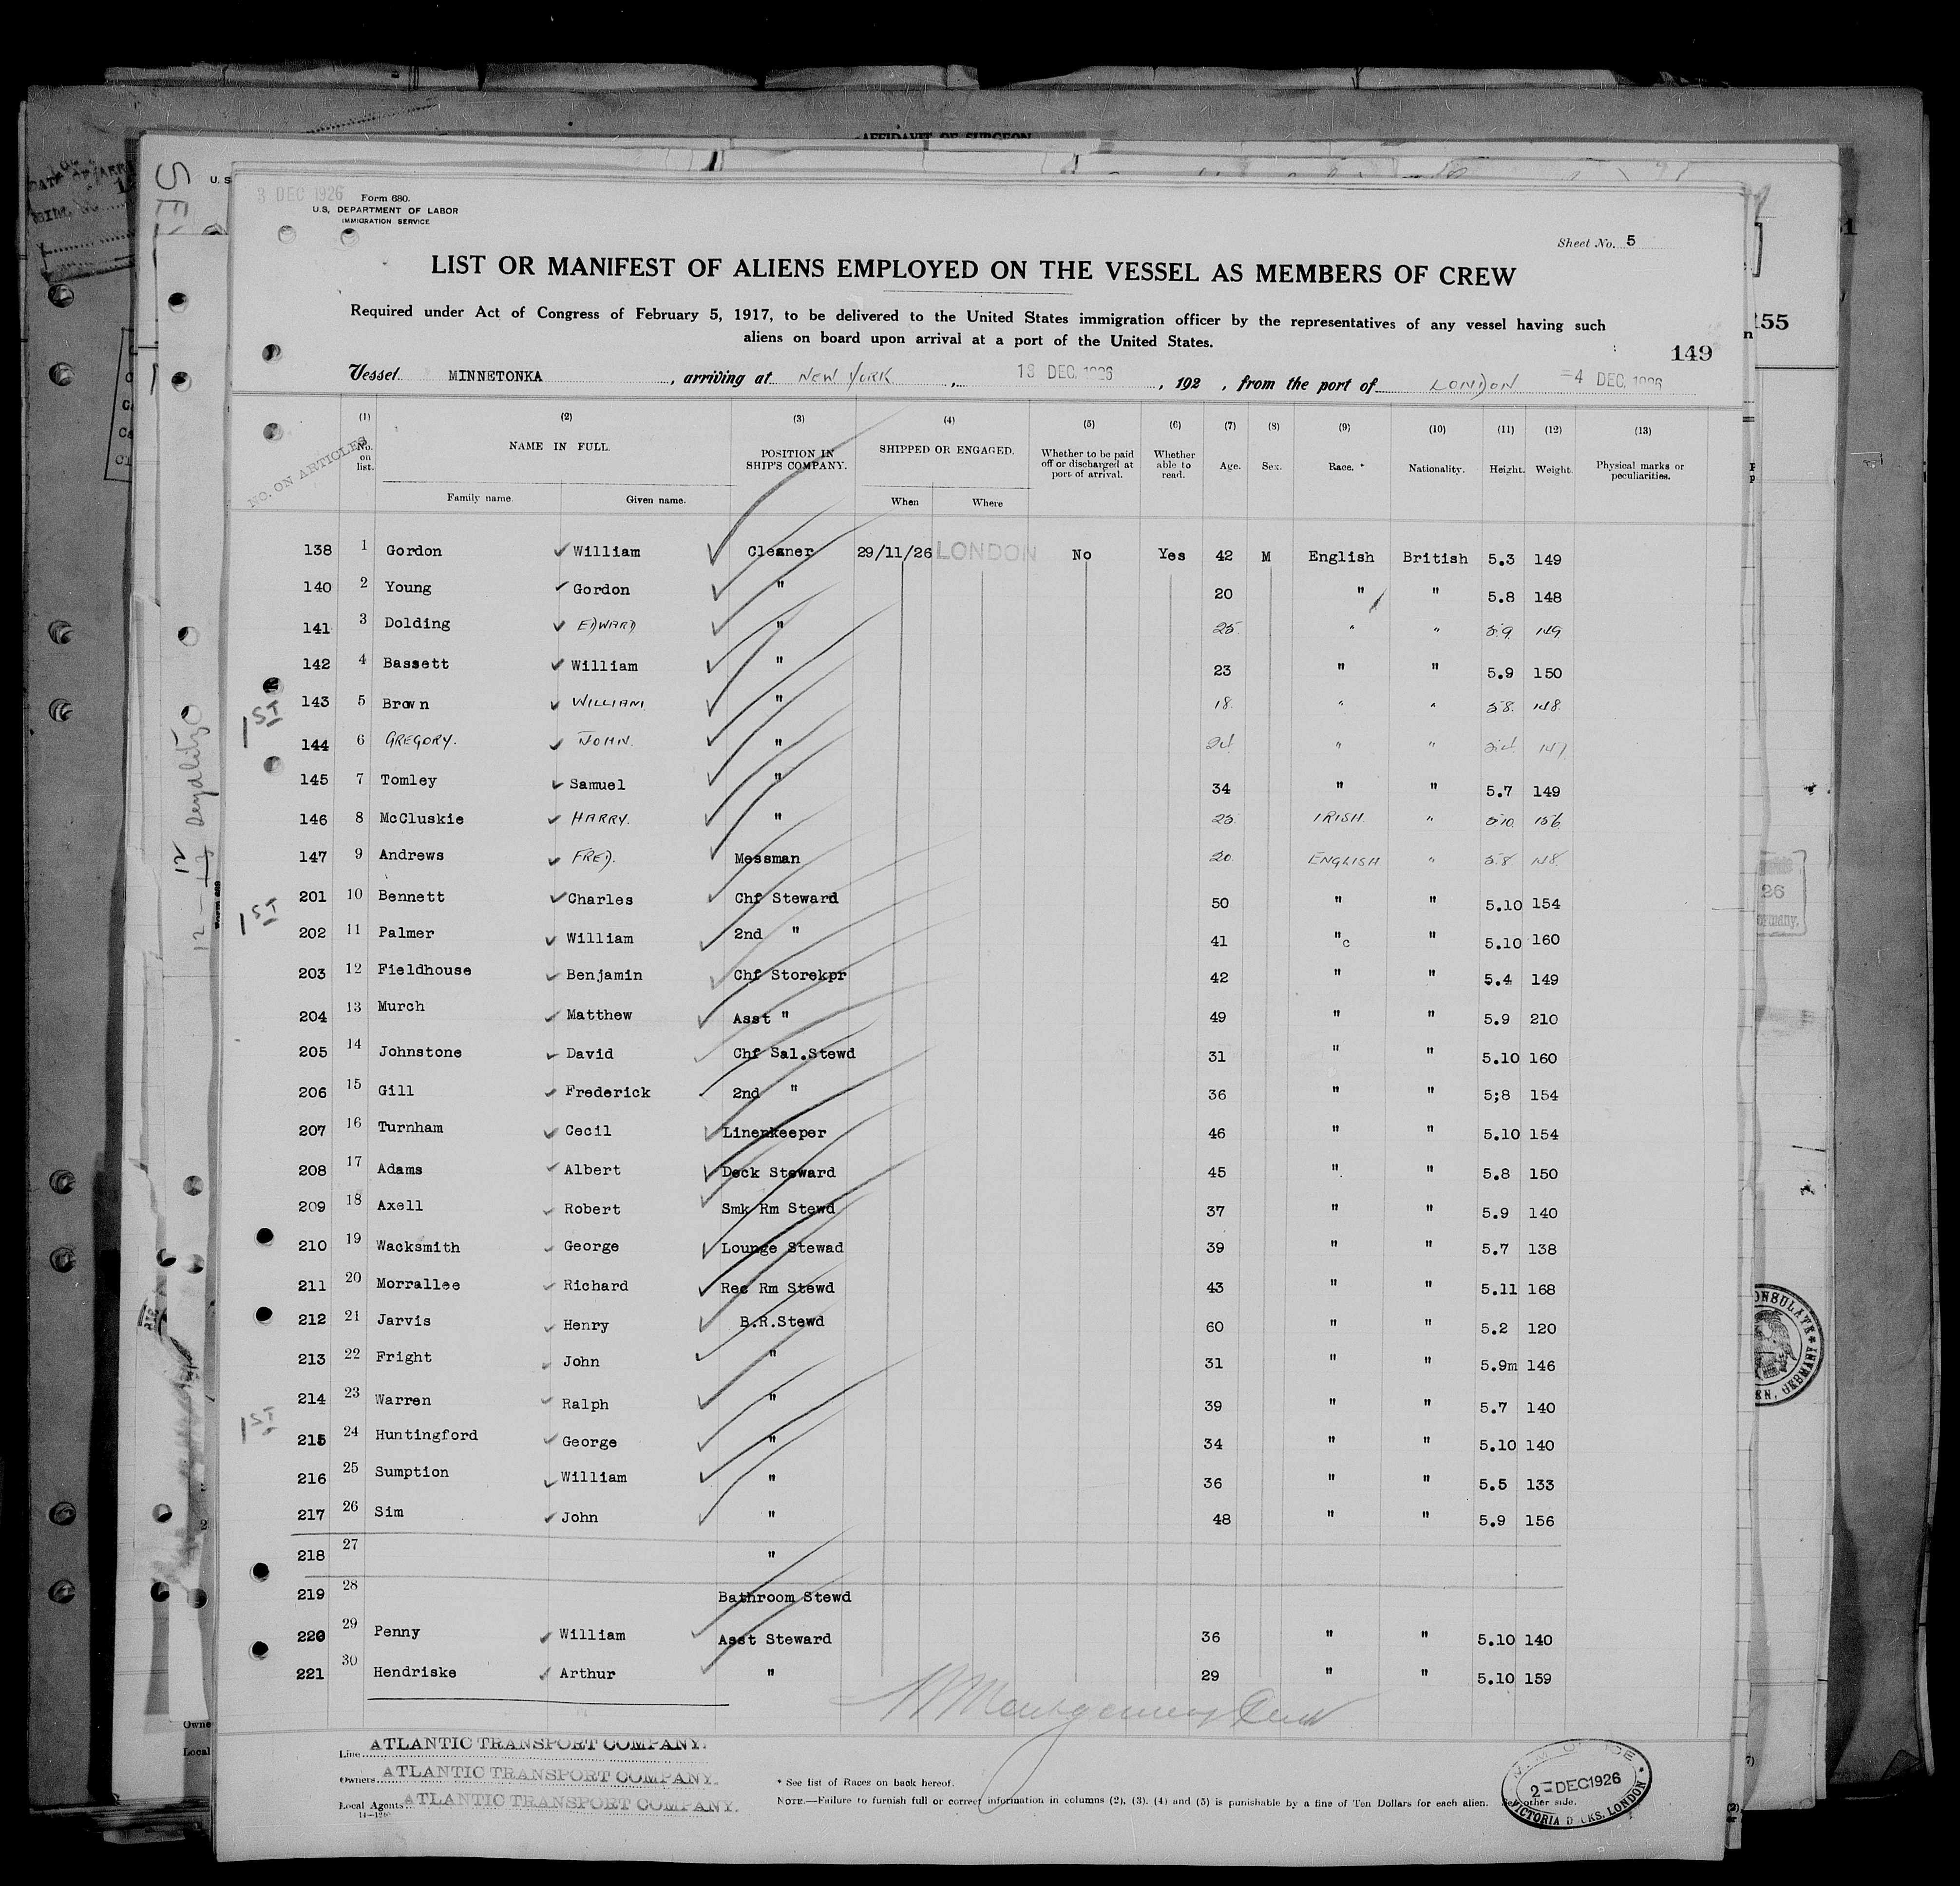 AFFIDAVIT OF SURGEON
3 DEC 1926
Form 680.
U.S. DEPARTMENT OF LABOR
IMMIGRATION SERVICE
Sheet No. 5
LIST OR MANIFEST OF ALIENS EMPLOYED ON THE VESSEL AS MEMBERS OF CREW
Required under Act of Congress of February 5, 1917, to be delivered to the United States immigration officer by the representatives of any vessel having such
aliens on board upon arrival at a port of the United States.
149
155
Vessel MINNETONKA, arriving at NEW YORK, 13 DEC. 1926, 192 , from the port of LONDON =4 DEC. 1926
NO. ON ARTICLES
(1) (2) (3) (4) (5) (6) (7) (8) (9) (10) (11) (12) (13)
No. on list. NAME IN FULL. POSITION IN SHIP'S COMPANY. SHIPPED OR ENGAGED. Whether to be paid off or discharged at port of arrival. Whether able to read. Age. Sex. Race. * Nationality. Height. Weight. Physical marks or peculiarities.
Family name. Given name. When Where
138 1 Gordon William Cleaner 29/11/26 LONDON No Yes 42 M English British 5.3 149
140 2 Young Gordon " 20 " " 5.8 148
141 3 Dolding EDWARD " 25 " " 5.9 149
142 4 Bassett William " 23 " " 5.9 150
143 5 Brown WILLIAM " 18 " " 5.8 148
144 6 GREGORY. JOHN. " 24 " " 5.4 147
145 7 Tomley Samuel " 34 " " 5.7 149
146 8 McCluskie HARRY. " 25 IRISH. " 5.10 156
147 9 Andrews FRED. Messman 20 ENGLISH " 5.8 148
201 10 Bennett Charles Chf Steward 50 " " 5.10 154
202 11 Palmer William 2nd " 41 "c " 5.10 160
203 12 Fieldhouse Benjamin Chf Storekpr 42 " " 5.4 149
204 13 Murch Matthew Asst " 49 " " 5.9 210
205 14 Johnstone David Chf Sal.Stewd 31 " " 5.10 160
206 15 Gill Frederick 2nd " 36 " " 5;8 154
207 16 Turnham Cecil Linenkeeper 46 " " 5.10 154
208 17 Adams Albert Deck Steward 45 " " 5.8 150
209 18 Axell Robert Smk Rm Stewd 37 " " 5.9 140
210 19 Wacksmith George Lounge Stewad 39 " " 5.7 138
211 20 Morrallee Richard Rec Rm Stewd 43 " " 5.11 168
212 21 Jarvis Henry B.R.Stewd 60 " " 5.2 120
213 22 Fright John " 31 " " 5.9m 146
214 23 Warren Ralph " 39 " " 5.7 140
215 24 Huntingford George " 34 " " 5.10 140
216 25 Sumption William " 36 " " 5.5 133
217 26 Sim John " 48 " " 5.9 156
218 27 "
219 28 Bathroom Stewd
220 29 Penny William Asst Steward 36 " " 5.10 140
221 30 Hendriske Arthur " 29 " " 5.10 159
1ST
1ST
1ST
Line ATLANTIC TRANSPORT COMPANY.
Owners ATLANTIC TRANSPORT COMPANY.
Local Agents ATLANTIC TRANSPORT COMPANY.
* See list of Races on back hereof.
NOTE.—Failure to furnish full or correct information in columns (2), (3), (4) and (5) is punishable by a fine of Ten Dollars for each alien. See other side.
2=DEC1926
VICTORIA DOCKS, LONDON